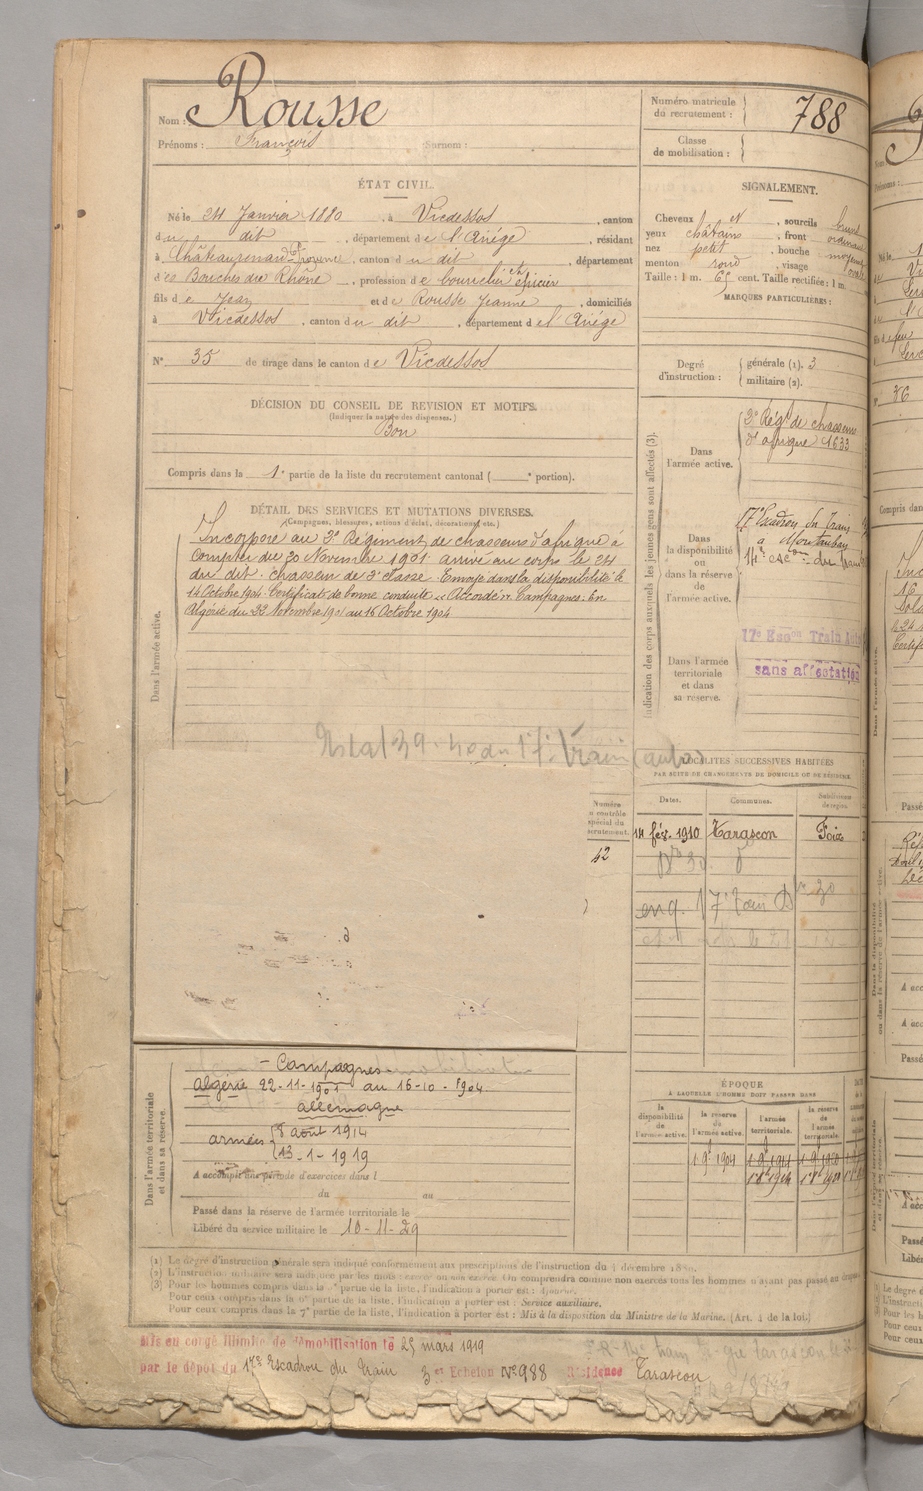 Nom : Rousse
Prénoms : François Surnom :
Numéro matricule du recrutement : 788
Classe de mobilisation :
ÉTAT CIVIL.
Né le 24 Janvier 1880, à Vicdessos, canton
du dit, département de l'Ariége, résidant
à Châteaurenard Pr Provence, canton du dit, département
des Bouches du Rhône, profession de bourrelier et épicier
fils de Jean et de Rousse Jeanne, domiciliés
à Vicdessos, canton du dit, département de l'Ariége
N° 35 de tirage dans le canton de Vicdessos
SIGNALEMENT.
Cheveux et, sourcils bruns
yeux châtains, front ordinaire
nez petit, bouche moyenne
menton rond, visage ovale
Taille : 1 m. 65 cent. Taille rectifiée : 1 m.
MARQUES PARTICULIÈRES :
Degré d'instruction : générale (1). 3
militaire (2).
DÉCISION DU CONSEIL DE REVISION ET MOTIFS.
(Indiquer la nature des dispenses.)
Bon
Compris dans la 1e partie de la liste du recrutement cantonal ( e portion).
DÉTAIL DES SERVICES ET MUTATIONS DIVERSES.
(Campagnes, blessures, actions d'éclat, décorations, etc.)
Dans l'armée active.
Incorporé au 3e Régiment de chasseurs d'afrique à
compter du 20 Novembre 1901 arrivé au corps le 24
du dit. chasseur de 2e classe. Envoyé dans la disponibilité le
14 Octobre 1904. Certificat de bonne conduite "Accordé". Campagnes : En
Algérie du 22 Novembre 1901 au 16 Octobre 1904
Indication des corps auxquels les jeunes gens sont affectés (3).
Dans l'armée active.
3e Régt de chasseurs
d'afrique 1633
Dans la disponibilité ou dans la réserve de l'armée active.
17e Escadron du Train
à Montauban
Dans l'armée territoriale et dans sa réserve.
17e Escon Train Auto
sans affectation
du 17e Train (auto)
LOCALITÉS SUCCESSIVES HABITÉES
PAR SUITE DE CHANGEMENTS DE DOMICILE OU DE RÉSIDENCE.
Dates. Communes. Subdivisions de région.
14 fév. 1910 Tarascon Foix
Numéro
contrôle
spécial du
recrutement.
42
Dans l'armée territoriale et dans sa réserve.
- Campagnes -
Algérie 22-11-1901 au 16-10-1904
Allemagne
armées 8 août 1914
13-1-1919
A accompli une période d'exercices dans l
du au
Passé dans la réserve de l'armée territoriale le
Libéré du service militaire le 10-11-29
ÉPOQUE
A LAQUELLE L'HOMME DOIT PASSER DANS
la disponibilité de l'armée active.
la réserve de l'armée active.
l'armée territoriale.
la réserve de l'armée territoriale.
1.9e 1904
(1) Le degré d'instruction générale sera indiqué conformément aux prescriptions de l'instruction du 4 décembre 1889.
(2) L'instruction militaire sera indiquée par les mots : exercé ou non exercé. On comprendra comme non exercés tous les hommes n'ayant pas passé au drapeau
(3) Pour les hommes compris dans la 5e partie de la liste, l'indication à porter est : Ajourné.
Pour ceux compris dans la 6e partie de la liste, l'indication à porter est : Service auxiliaire.
Pour ceux compris dans la 7e partie de la liste, l'indication à porter est : Mis à la disposition du Ministre de la Marine. (Art. 4 de la loi.)
Mis en congé illimité de démobilisation le 25 mars 1919
par le dépôt du 17e Escadron du Train 3e Echelon N° 988 Résidence Tarascon